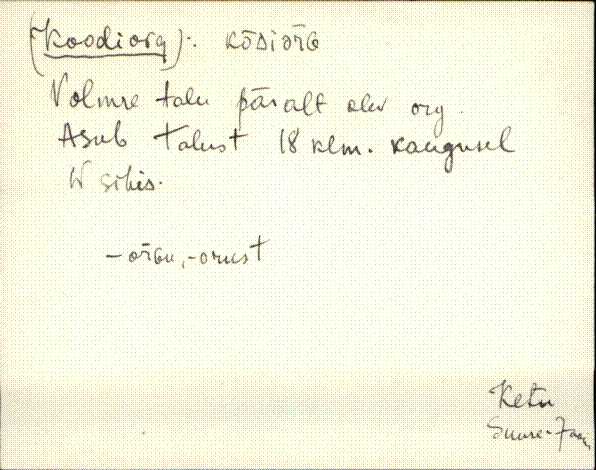 (Koodiorg): kōDiōrG
Volmre talu päralt olev org.
Asub talust 18 klm. kaugusel
W sihis.
-ōrGu, -orust
Ketu
Suure-Jaan